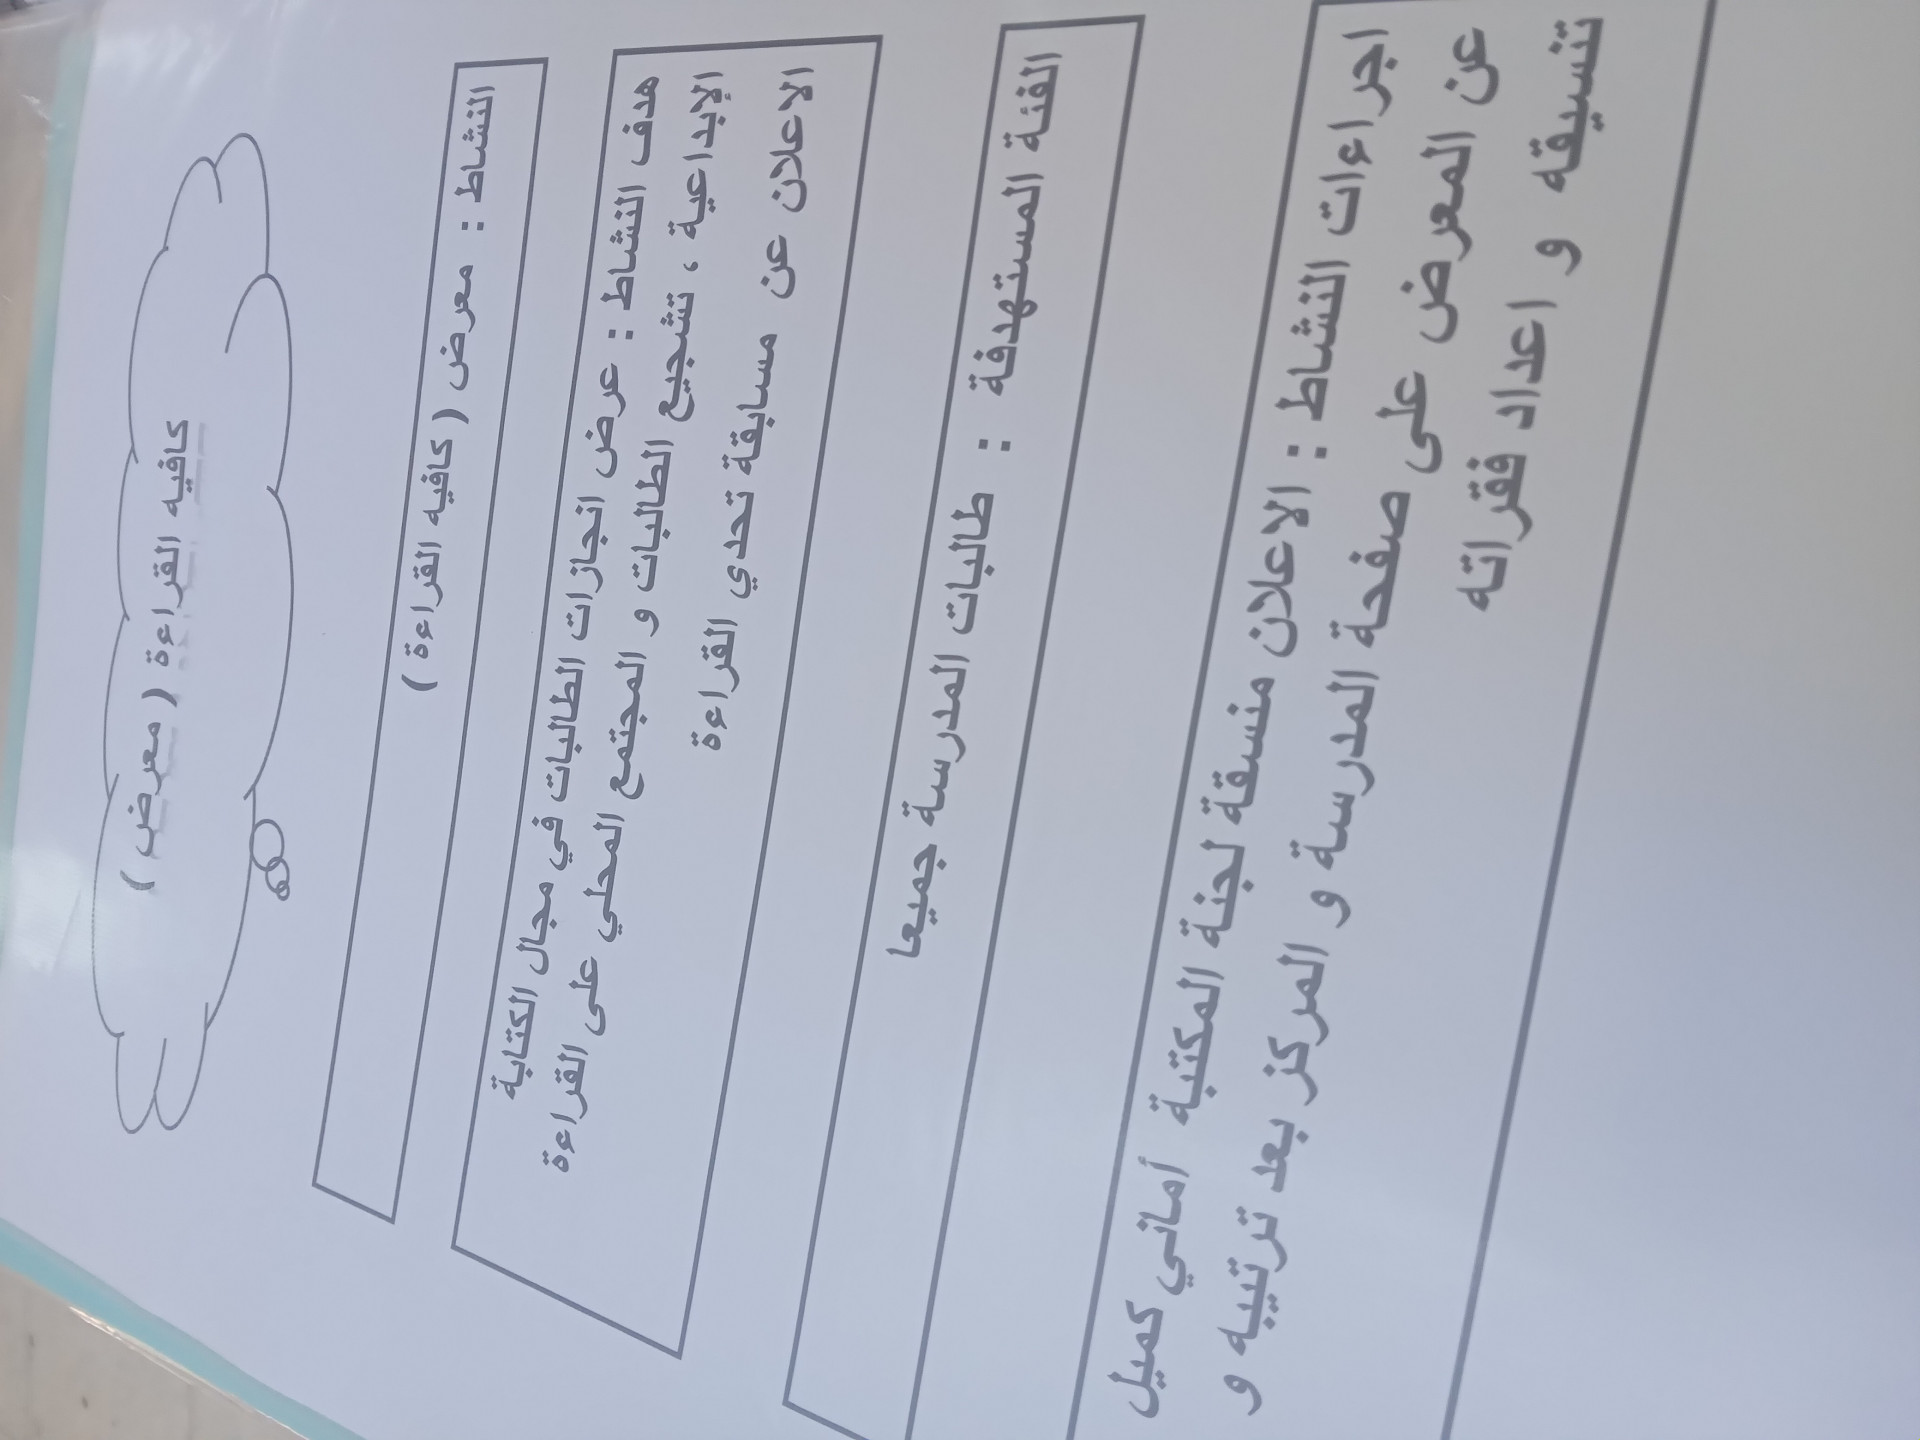 كافيه القراءة ( معرض )
النشاط : معرض ( كافيه القراءة )
هدف النشاط : عرض انجازات الطالبات في مجال الكتابة
الإبداعية ، تشجيع الطالبات و المجتمع المحلي على القراءة
الاعلان عن مسابقة تحدي القراءة
الفئة المستهدفة : طالبات المدرسة جميعا
اجراءات النشاط : الاعلان منسقة لجنة المكتبة أماني كميل
عن المعرض على صفحة المدرسة و المركز بعد ترتيبه و
تنسيقه و اعداد فقراته